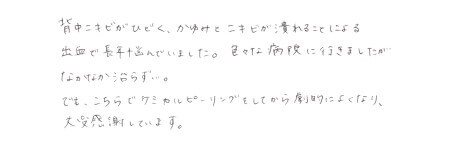 背中ニキビがひどく、かゆみとニキビが潰れることによる
出血で長年悩んでいました。色々な病院に行きましたが
なかなか治らず…。
でも、こちらでケミカルピーリングをしてから劇的によくなり、
大変感謝しています。